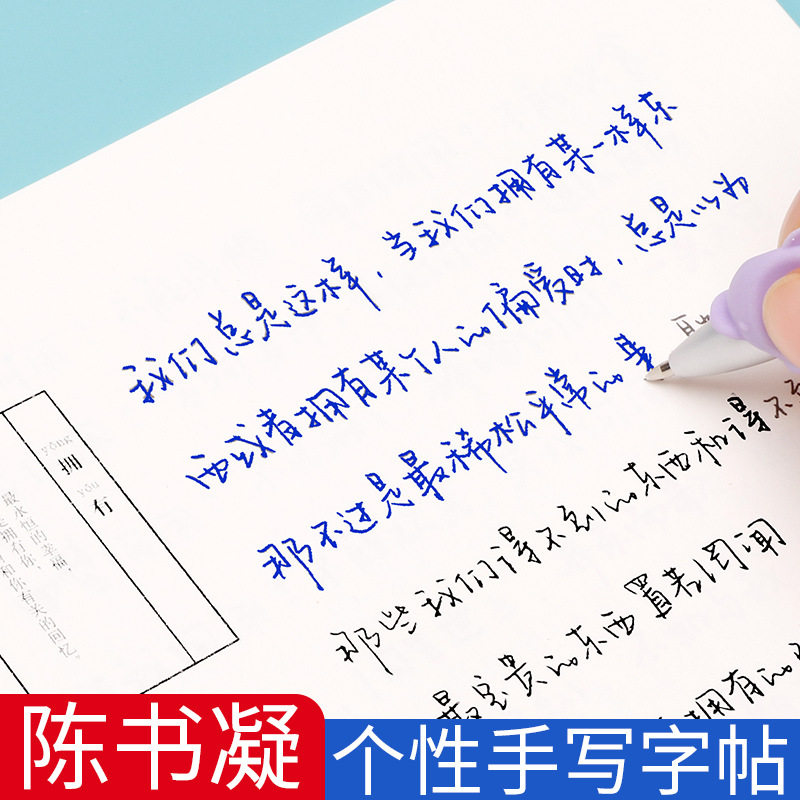 我们总是这样,当我们拥有某一样东
西或者拥有某个人的偏爱时,总是以为
那不过是最稀松平常的
那些我们得不到的东西和得不
最宝贵的东西置若罔闻
拥有的
yōng
拥
yǒu
有
最永恒的幸福,
拥有你,
你有关的回忆。
陈书凝
个性手写字帖